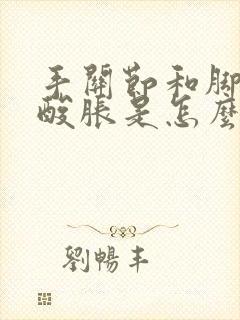 手關節和腳
酸脹是怎麼
劉暢丰